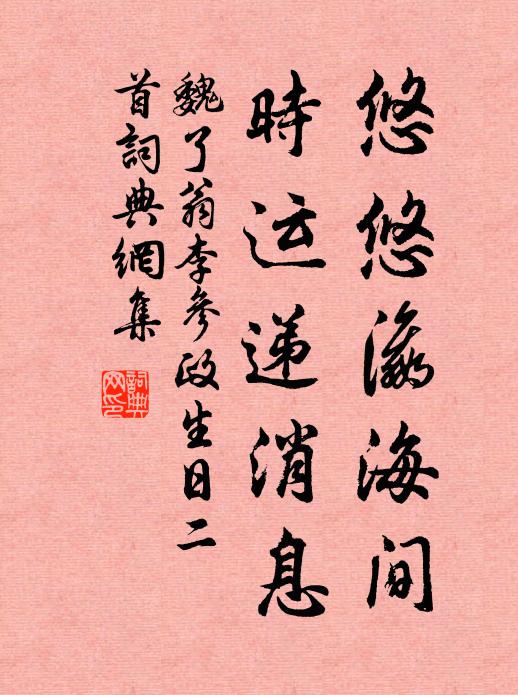 悠悠瀛海间
時运递消息
魏了翁李参政生日二
首詞典網集
詞典
网印